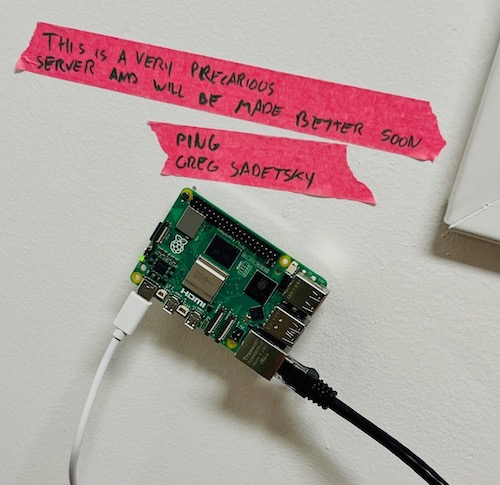 THIS IS A VERY PRECARIOUS
SERVER AND WILL BE MADE BETTER SOON
PING
GREG SADETSKY
HDMI